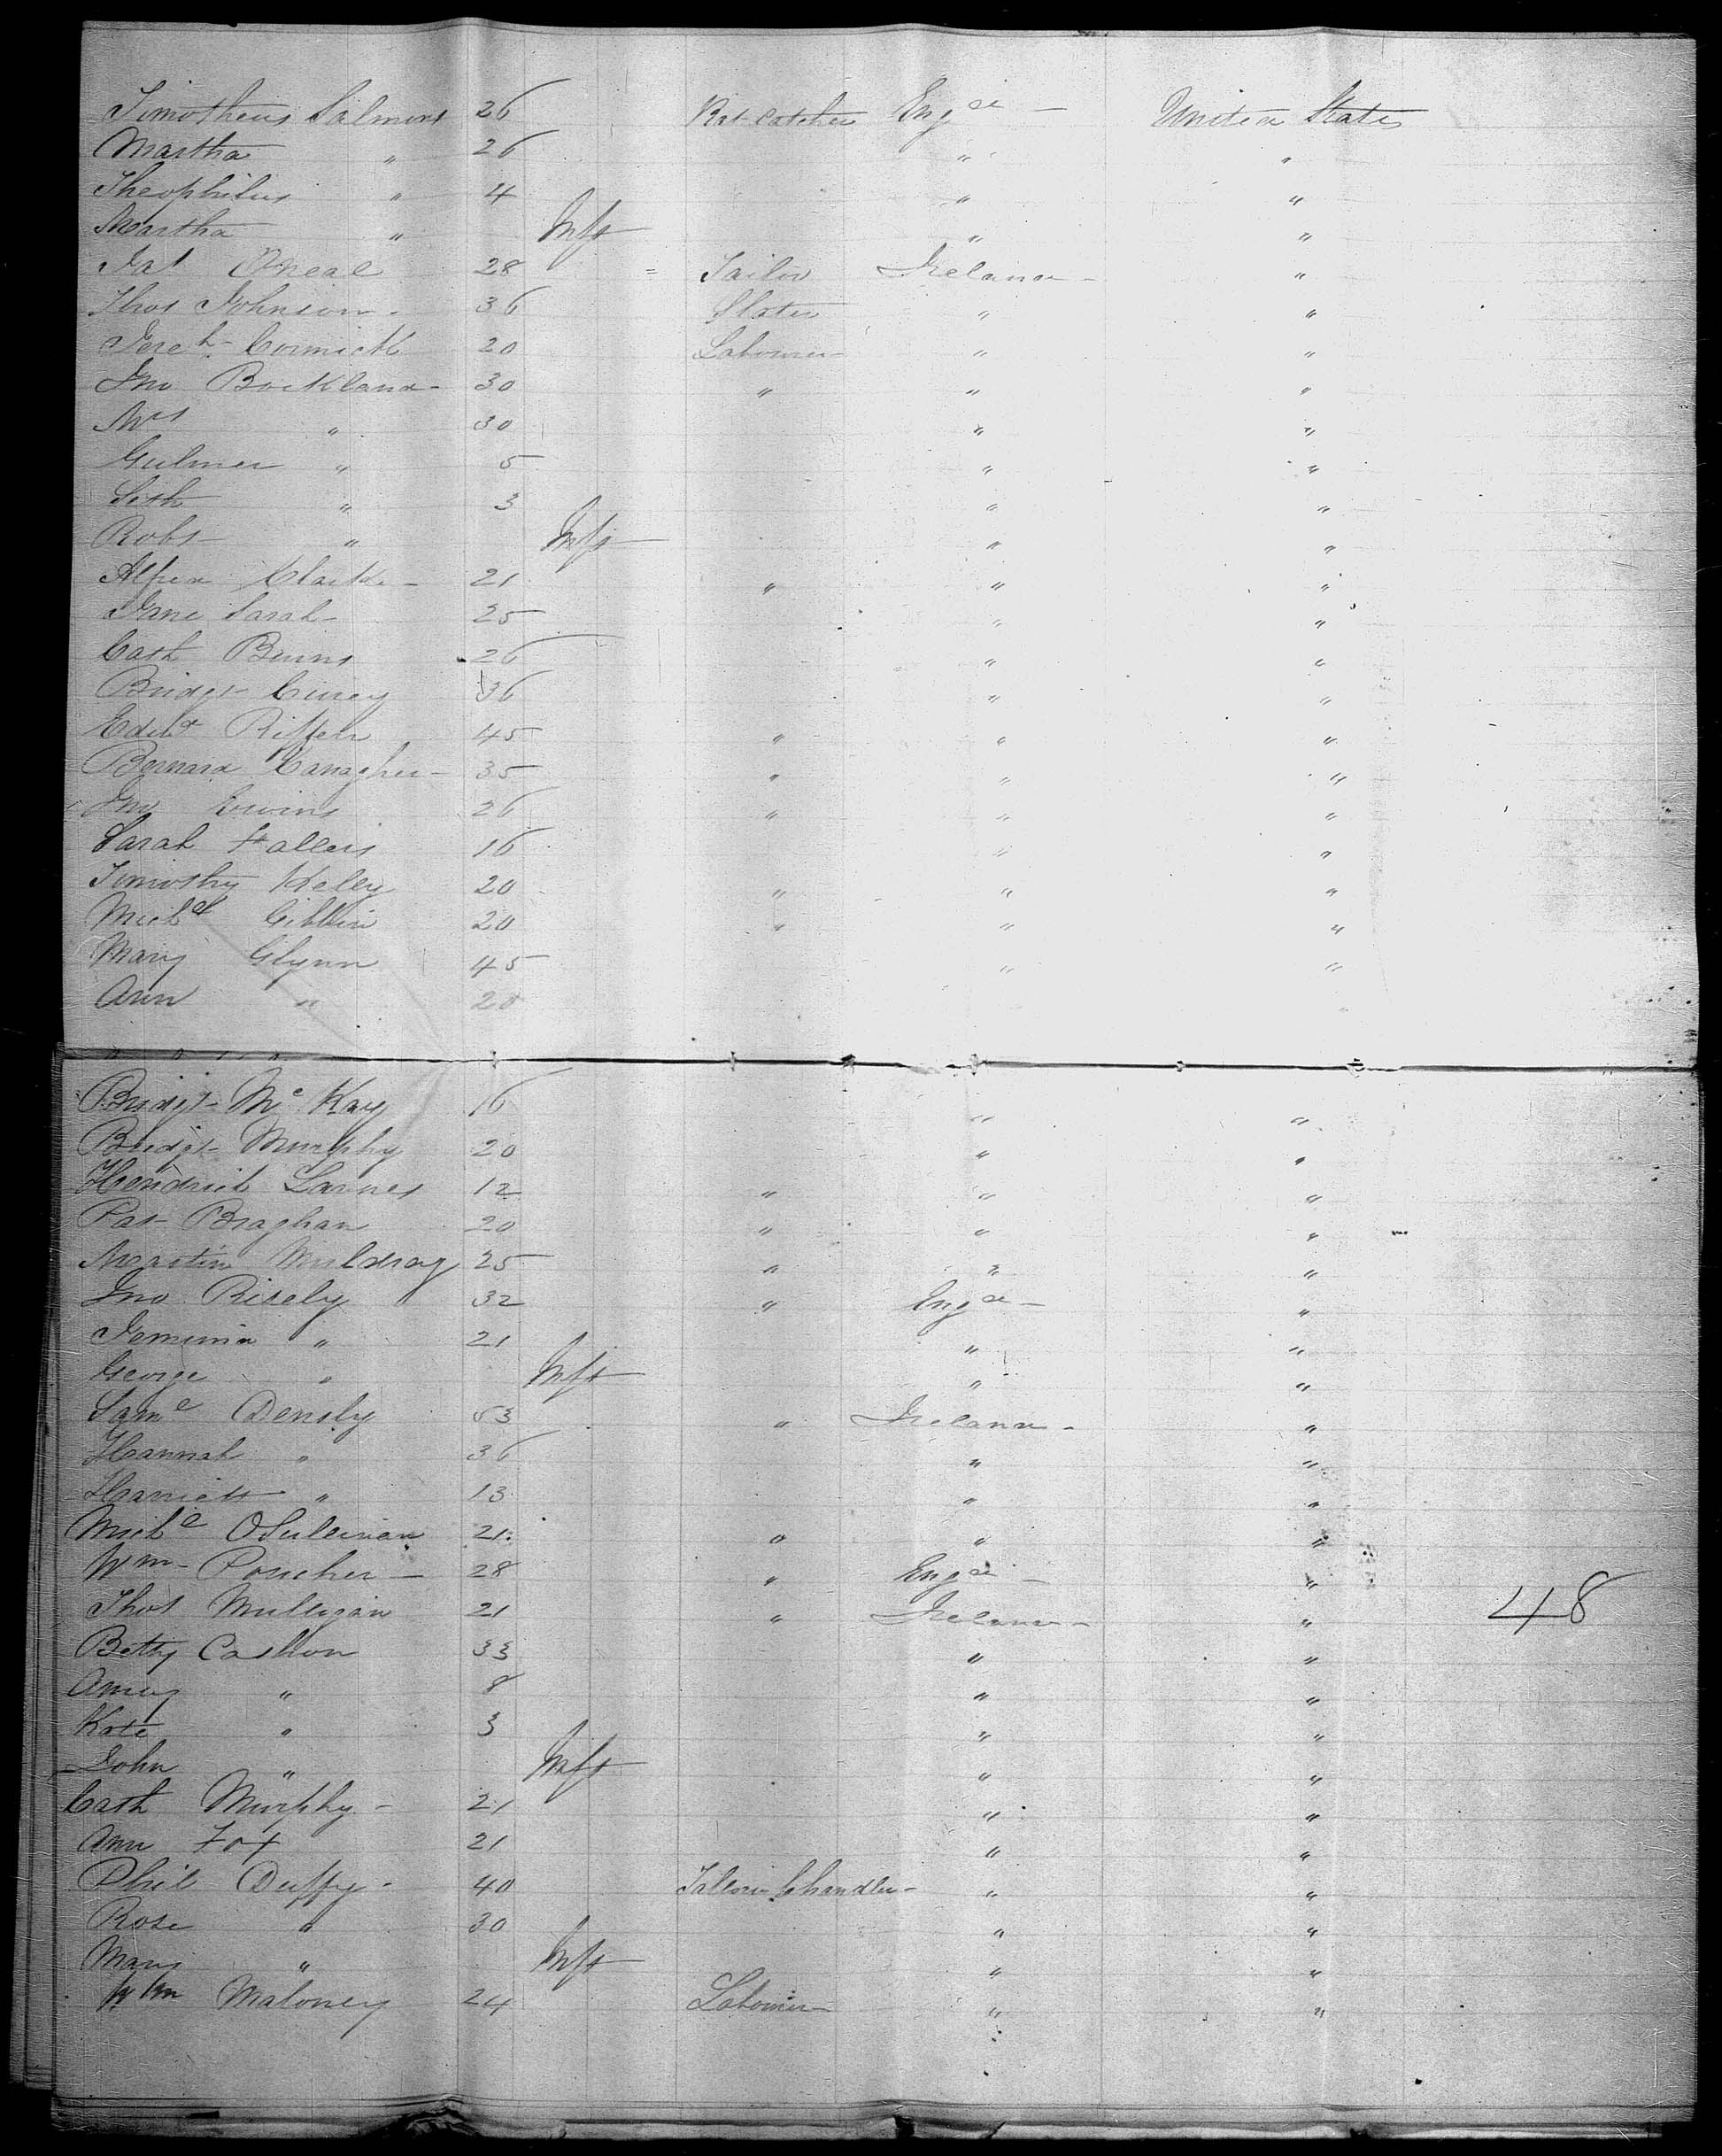 Timotheus Salmons 26 Rat-Catcher Engd United States
Martha " 26 " "
Theophilus " 4 " "
Martha " Inft " "
Pat ONeal 28 = Tailor Ireland "
Thos Johnson 36 Slater " "
Jereh Cormick 20 Labourer " "
Jno Bockland 30 " " "
Mrs " 30 " "
Gulmer " 5 " "
Seth " 3 " "
Robt " Inft " "
Alfred Clarke 21 " " "
Jane Sarah 25 " "
Cath Burns 26 " "
Bridgt 36 " "
Edwd 45 " " "
Bernard 35 " " "
Jno 26 " " "
Sarah 16 " "
Timothy Kelley 20 " " "
Michl Gibblin 20 " " "
Mary Glynn 45 " "
Ann " 20 "
Bridgt McKay 16 " "
Bridgt Murphy 20 " "
Hendrick 12 " " "
Pat Braghan 20 " " "
Martin Muldray 25 " " "
Jno Risely 32 " Engd "
Jemima " 21 " "
George " Inft " "
Saml Densly 53 " Ireland "
Hannah " 36 " "
Harriett " 13 " "
Michl OSullivan 21 " " "
Wm Poucher 28 " Engd "
Thos Mulligan 21 " Ireland " 48
Betty Cashon 33 " "
Amey " 8 " "
Kate " 3 " "
John " Inft " "
Cath Murphy 21 " "
Ann Fox 21 " "
Phil Duffy 40 Tallow Chandler " "
Rose " 30 " "
Mary " Inft " "
Wm Maloney 24 Labourer " "